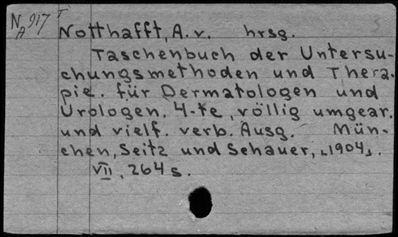 N917 T
A
Notthafft, A. v. hrsg.
Taschenbuch der Untersu-
chungsmethoden und Thera-
pie. für Dermatologen und
Urologen. 4-te, völlig umgear.
und vielf. verb. Ausg. Mün-
chen, Seitz und Schauer, [1904].
VII, 264 s.